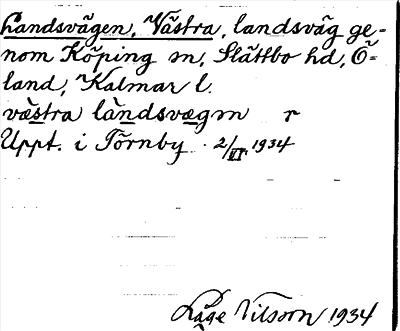 Landsvägen, Västra, landsväg ge-
nom Köping sn, Slättbo hd, Ö-
land, Kalmar l.
västra làndsvægɪn r
Uppt. i Törnby 2/VI 1934
Låge Nilsson 1934